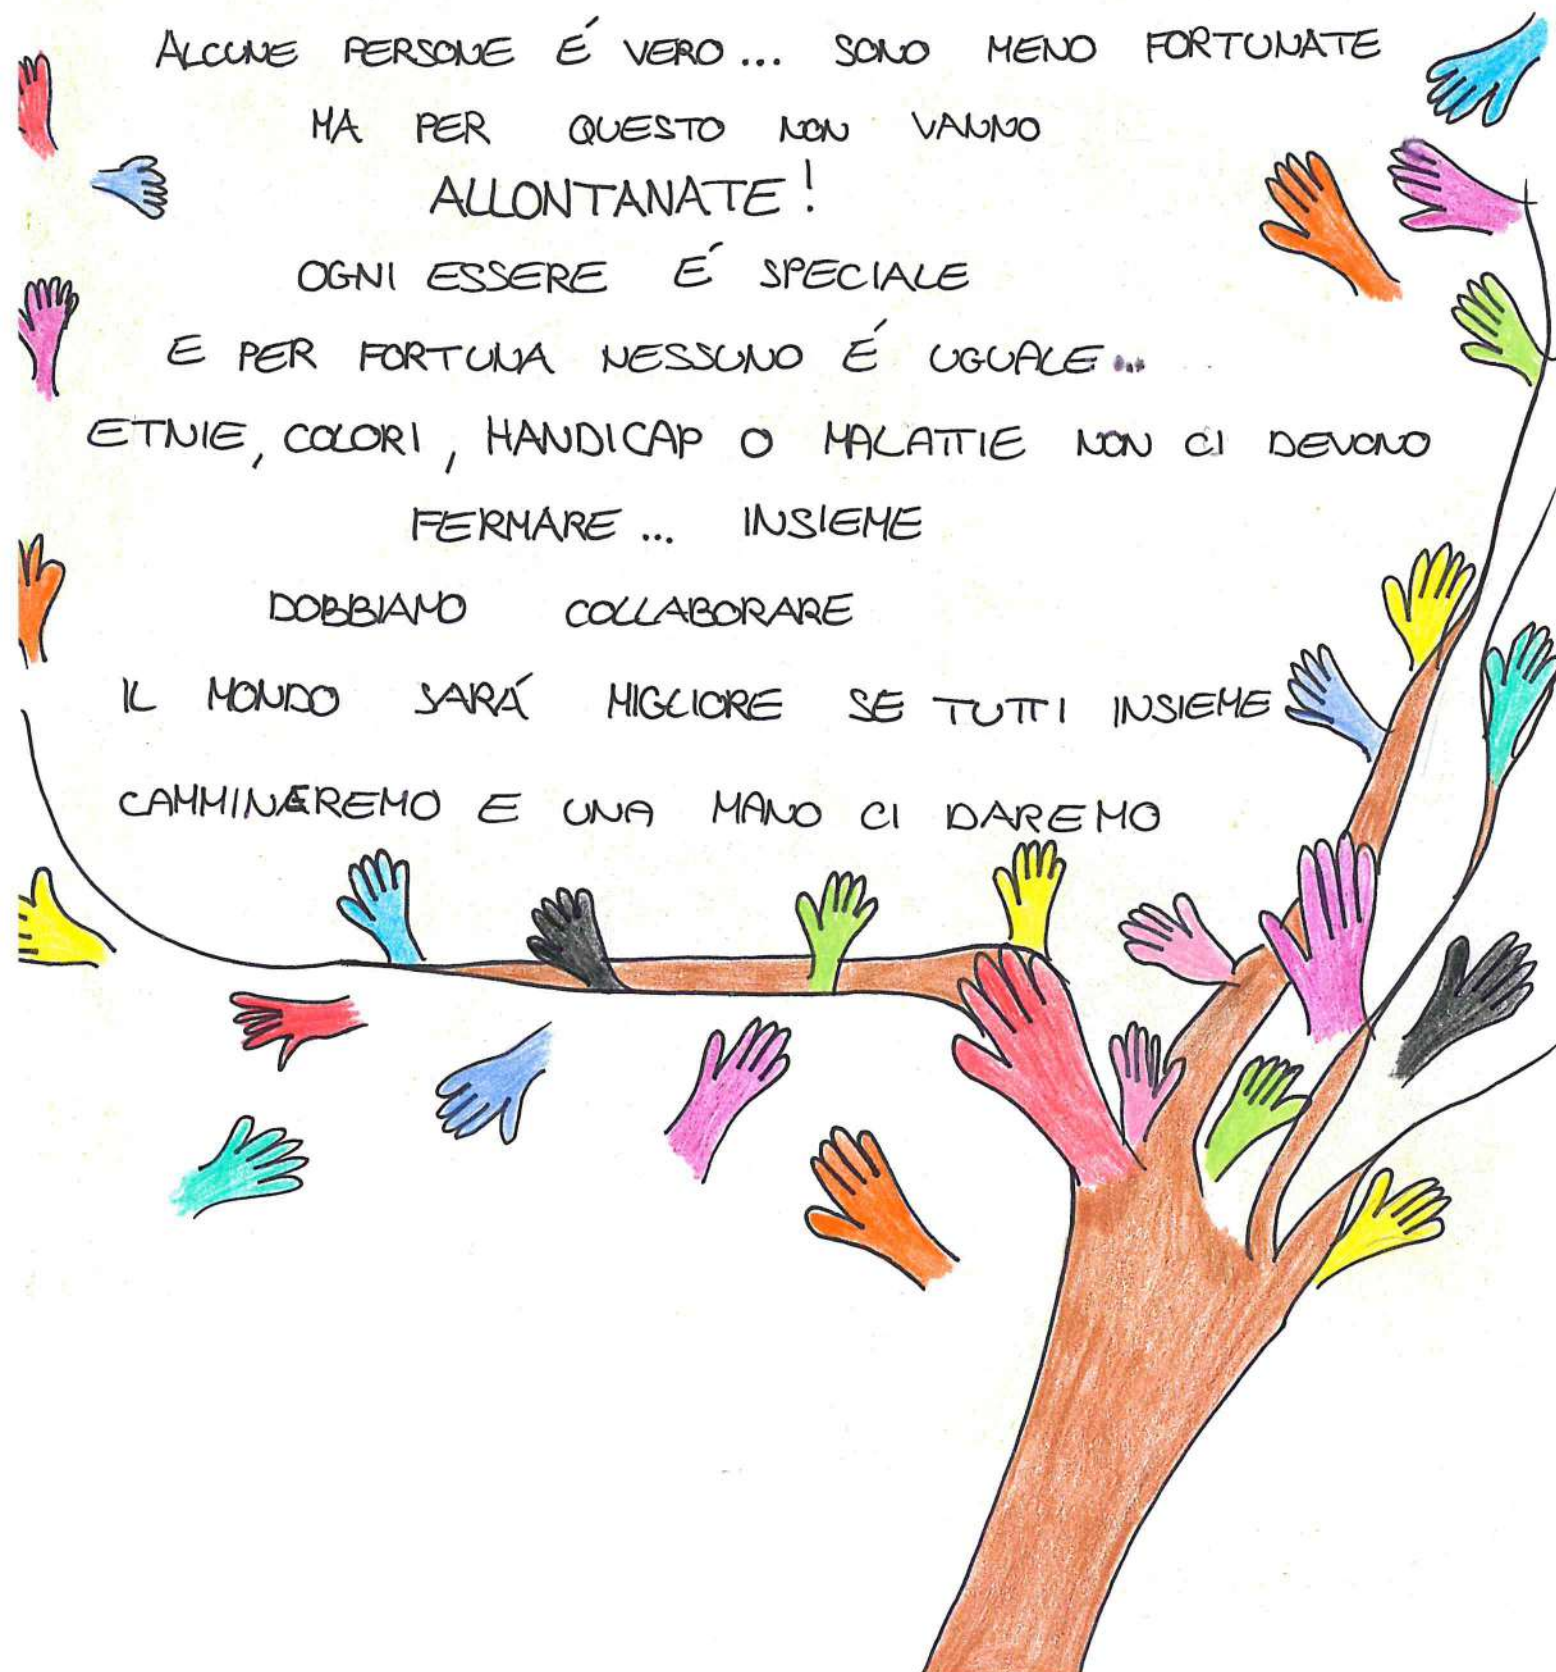 ALCUNE PERSONE É VERO... SONO MENO FORTUNATE
MA PER QUESTO NON VANNO
ALLONTANATE!
OGNI ESSERE É SPECIALE
E PER FORTUNA NESSUNO É UGUALE...
ETNIE, COLORI, HANDICAP O MALATTIE NON CI DEVONO
FERMARE... INSIEME
DOBBIAMO COLLABORARE
IL MONDO SARÁ MIGLIORE SE TUTTI INSIEME
CAMMINEREMO E UNA MANO CI DAREMO